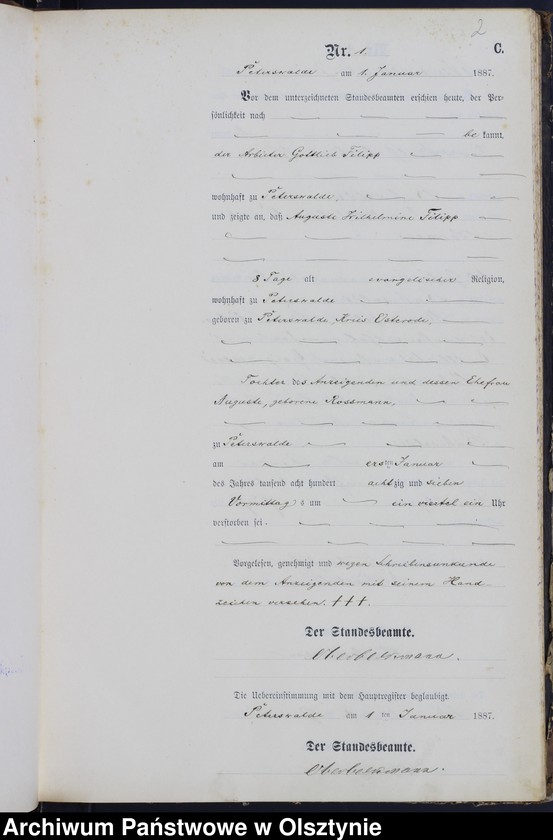 2
Nr. 1. C.
Peterswalde am 1. Januar 1887.
Vor dem unterzeichneten Standesbeamten erschien heute, der Per-
sönlichkeit nach
be kannt,
der Arbeiter Gottlieb Filipp
wohnhaft zu Peterswalde,
und zeigte an, daß Auguste Wilhelmine Filipp
8 Tage alt evangelischer Religion,
wohnhaft zu Peterswalde
geboren zu Peterswalde, Kreis Osterode,
Tochter des Anzeigenden und dessen Ehefrau
Auguste, geborene Rossmann,
zu Peterswalde
am ersten Januar
des Jahres tausend acht hundert achtzig und sieben
Vormittags um ein viertel ein Uhr
verstorben sei.
Vorgelesen, genehmigt und wegen Schreibensunkunde
von dem Anzeigenden mit seinem Hand-
zeichen versehen. †††.
Der Standesbeamte.
Die Uebereinstimmung mit dem Hauptregister beglaubigt.
Peterswalde am 1 ten Januar 1887.
Der Standesbeamte.
Archiwum Państwowe w Olsztynie